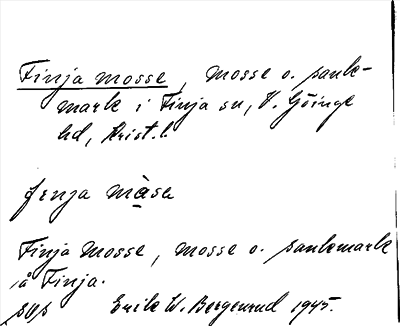 Finja mosse, mosse o. sank-
mark i Finja sn, V. Göinge
hd, Krist. l.
fenja måsa
Finja Mosse, mosse o. sankmark
å Finja.
Erik W. Bergenrud 1945.